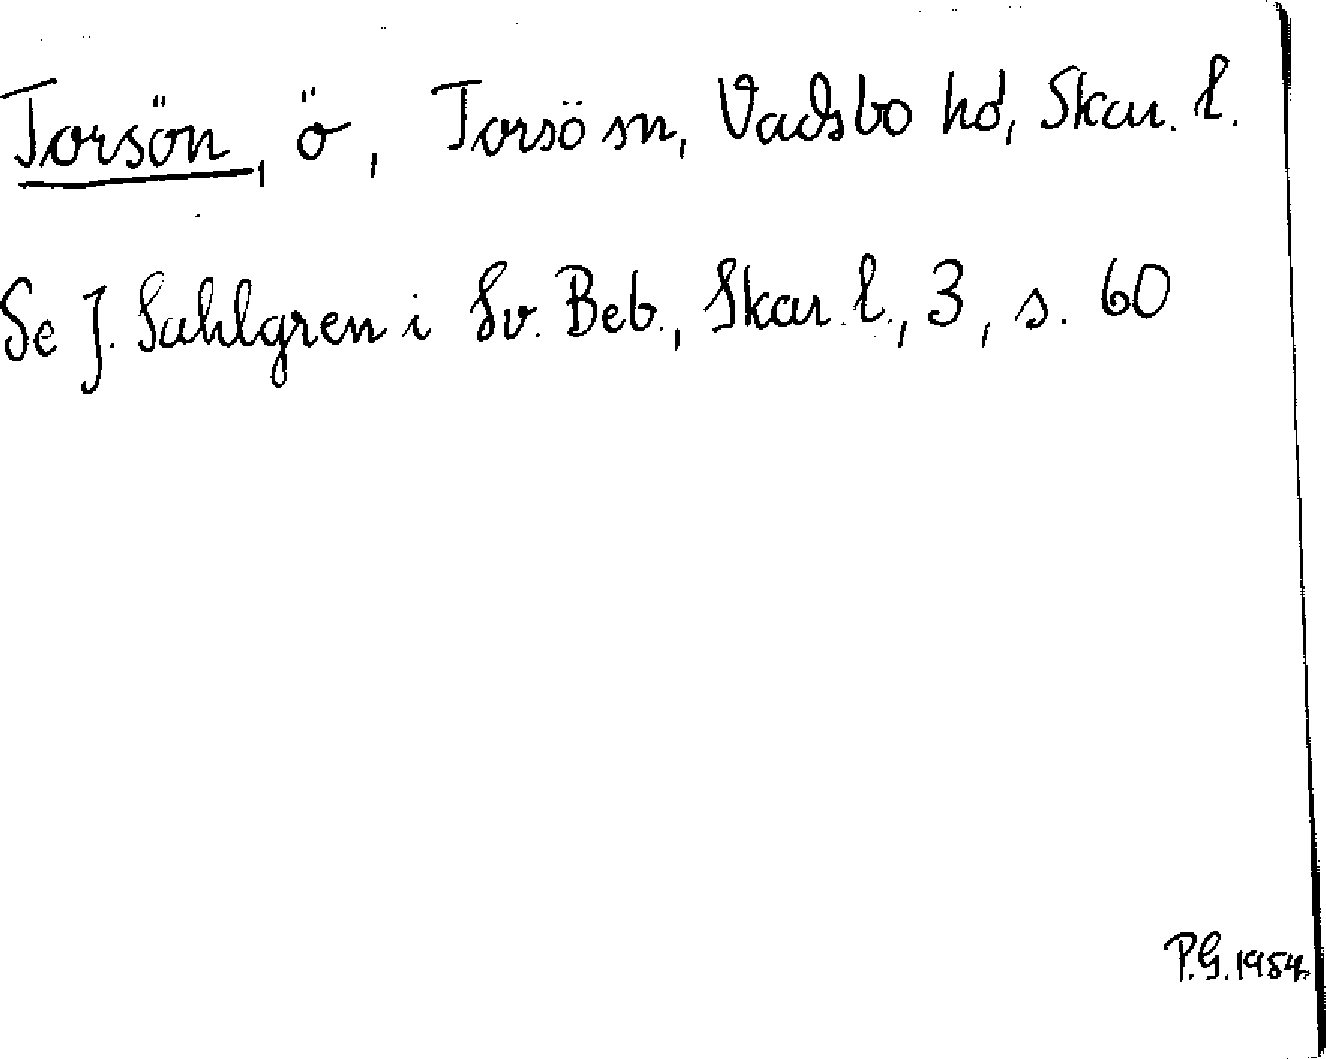 Torsön, ö, Torsö sn, Vadsbo hd, Skar. l.
Se J. Sahlgren i Sv. Beb., Skar. l., 3, s. 60
P.G. 1954.